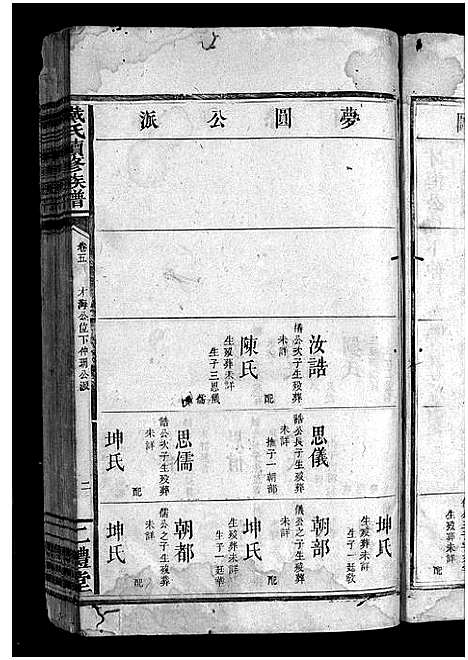 夢圓公派
汝誥
儀公次子生歿葬
未詳
配
陳氏
生歿葬未詳
生子三思儀
儒
思儀
誥公長子生歿葬
未詳
撫子一朝部
思儒
誥公次子生歿葬
未詳
配
坤氏
坤氏
生歿葬未詳
生子一廷敎
朝部
儀公之子生歿葬
未詳
配
坤氏
生歿葬未詳
生子一廷華
朝都
儒公之子生歿葬
未詳
配
坤氏
戴氏續修族譜
卷五
才海公位下仲珝公派
二
二禮堂